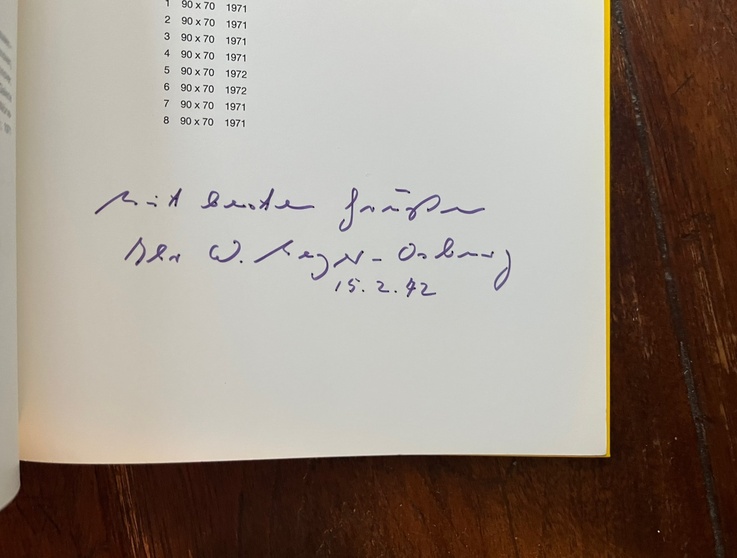 1 90 x 70 1971
2 90 x 70 1971
3 90 x 70 1971
4 90 x 70 1971
5 90 x 70 1972
6 90 x 70 1972
7 90 x 70 1971
8 90 x 70 1971
mit besten Grüßen
W. Meyer-Osburg
15.2.92